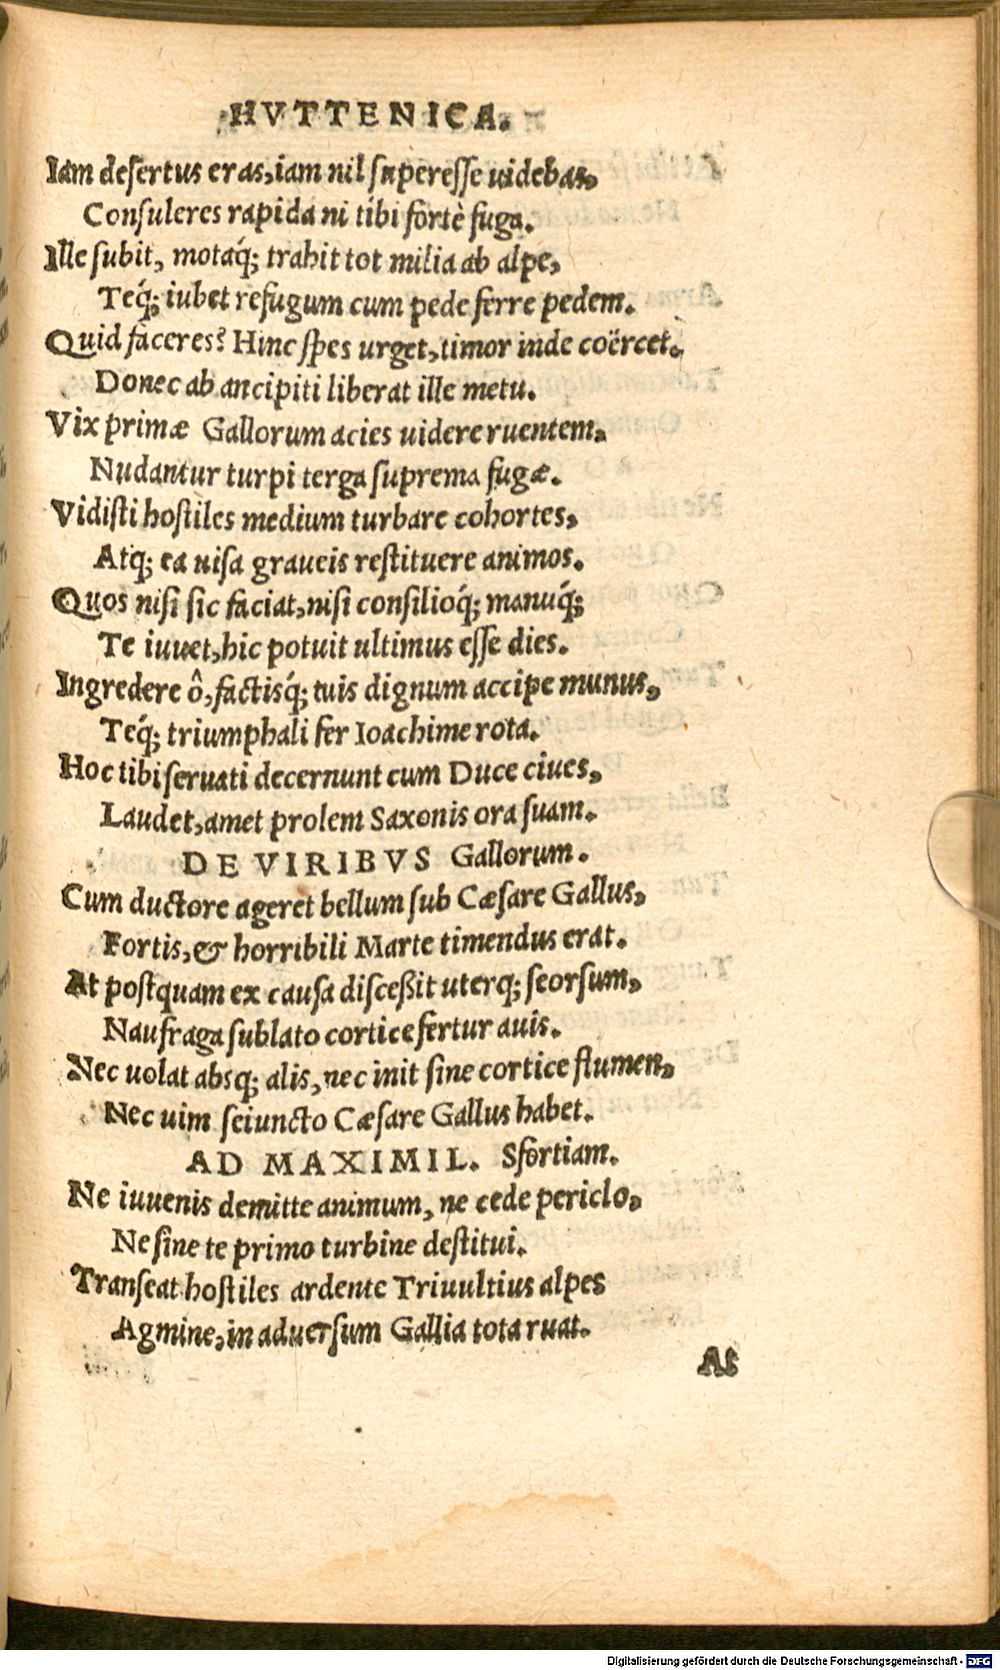 HVTTENICA.
Iam desertus eras, iam nil superesse uidebas,
Consuleres rapida ni tibi fortè fuga.
Ille subit, motaq́; trahit tot milia ab alpe,
Teq́; iubet refugum cum pede ferre pedem.
Quid faceres? Hinc spes urget, timor inde coërcet.
Donec ab ancipiti liberat ille metu.
Vix primæ Gallorum acies uidere ruentem,
Nudantur turpi terga suprema fugæ.
Vidisti hostiles medium turbare cohortes,
Atq; ea uisa graueis restituere animos.
Quos nisi sic faciat, nisi consilioq́; manuq́;
Te iuuet, hic potuit ultimus esse dies.
Ingredere ô, factisq́; tuis dignum accipe munus,
Teq́; triumphali fer Ioachime rota.
Hoc tibi seruati decernunt cum Duce ciues,
Laudet, amet prolem Saxonis ora suam.
DE VIRIBVS Gallorum.
Cum ductore ageret bellum sub Cæsare Gallus,
Fortis, & horribili Marte timendus erat.
At postquam ex causa disceßit uterq; seorsum,
Naufraga sublato cortice fertur auis.
Nec uolat absq; alis, nec init sine cortice flumen,
Nec uim seiuncto Cæsare Gallus habet.
AD MAXIMIL. Sfortiam.
Ne iuuenis demitte animum, ne cede periclo,
Ne sine te primo turbine destitui.
Transeat hostiles ardente Triuultius alpes
Agmine, in aduersum Gallia tota ruat.
At
Digitalisierung gefördert durch die Deutsche Forschungsgemeinschaft - DFG